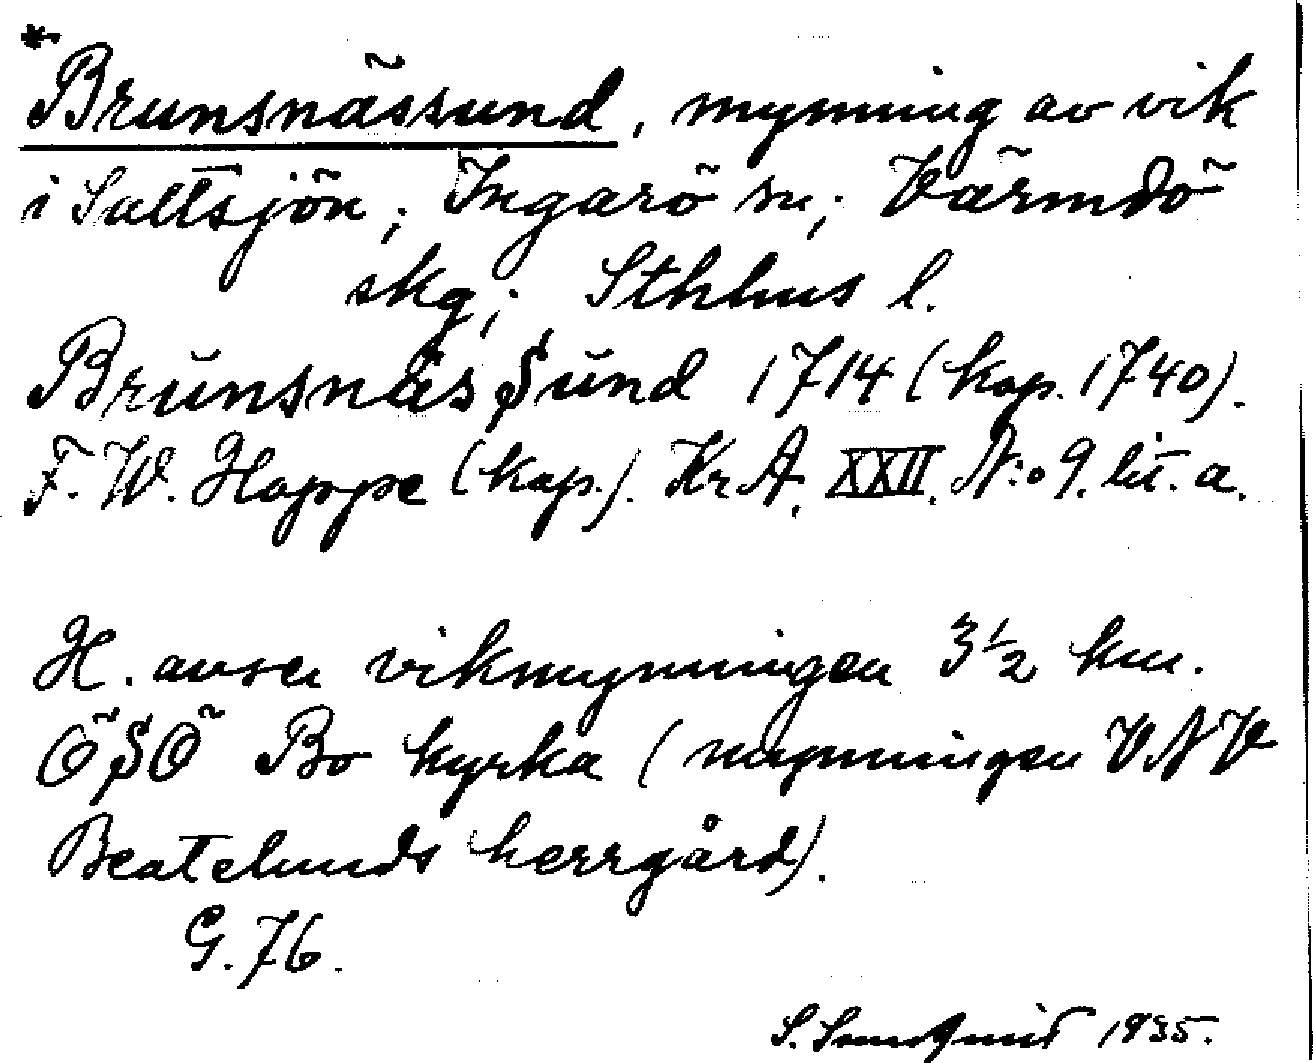 *Brunsnässund, mynning av vik
i Saltsjön; Ingarö sn; Värmdö
skg; Sthlms l.
Brunsnäs Sund 1714 (kop. 1740).
F. W. Hoppe (kop.). KrA, XXII. N:o 9. lit. a.
H. avser vikmynningen 3 1/2 km.
ÖSÖ Bo kyrka (mynningen VNV
Beatelunds herrgård).
G. 76.
S. 1935.